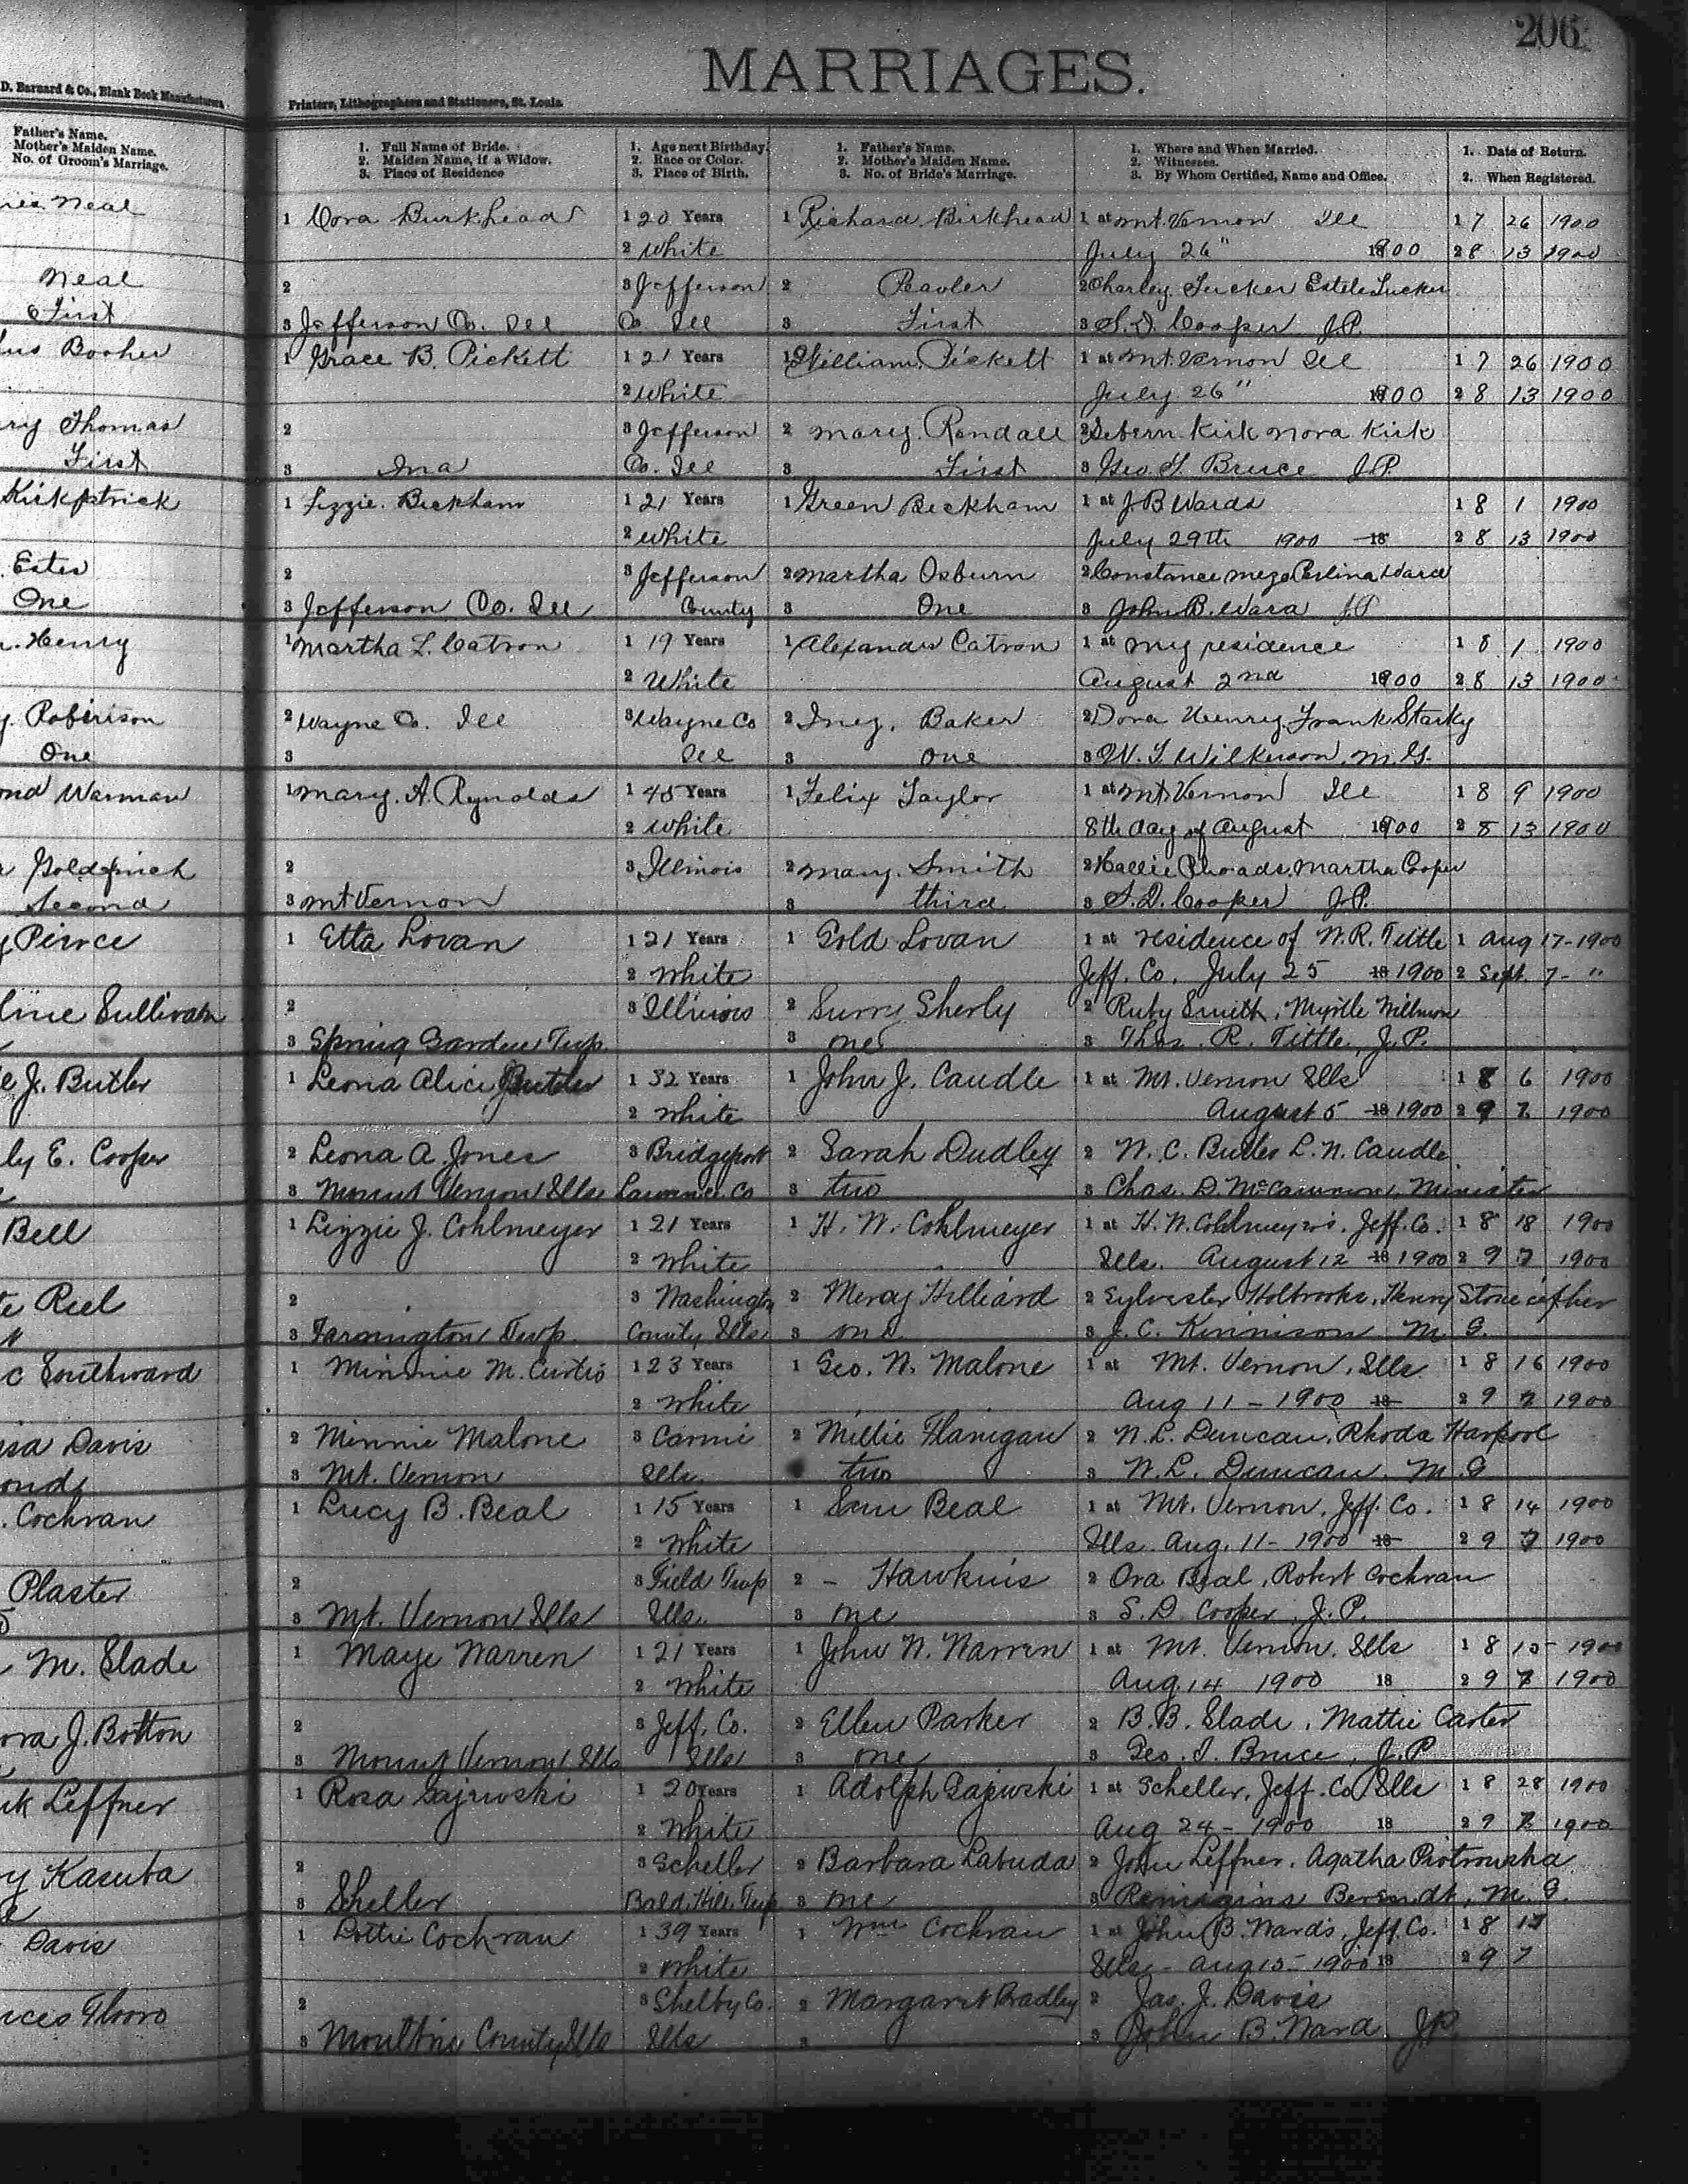 206
MARRIAGES.
D. Barnard & Co., Blank Book Manufacturers
Printers, Lithographers and Stationers, St. Louis.
Father's Name.
Mother's Maiden Name.
No. of Groom's Marriage.
1. Full Name of Bride.
2. Maiden Name, if a Widow.
3. Place of Residence
1. Age next Birthday.
2. Race or Color.
3. Place of Birth.
1. Father's Name.
2. Mother's Maiden Name.
3. No. of Bride's Marriage.
1. Where and When Married.
2. Witnesses.
3. By Whom Certified, Name and Office.
1. Date of Return.
2. When Registered.
Neal 1 Cora Burkhead 1 20 Years 1 Richard Birkhead 1 at Mt. Vernon Ill 1 7 26 1900
2 White July 26" 1900 2 8 13 1900
Neal 2 3 Jefferson 2 Pavler 2 Charley Tucker Estele Tucker
First 3 Jefferson Co. Ill Co. Ill 3 First 3 S. D. Cooper J.P.
Booher 1 Grace B. Pickett 1 21 Years 1 William Pickett 1 at Mt. Vernon Ill 1 7 26 1900
2 White July 26" 1900 2 8 13 1900
ry Thomas 2 3 Jefferson 2 Mary. Randall 2 Sebern Kirk Nora Kirk
First 3 Ina Co. Ill 3 First 3 Geo. T. Bruce J.P.
Kirkpatrick 1 Lizzie. Beckham 1 21 Years 1 Green Beckham 1 at J B Wards 1 8 1 1900
2 White July 29th 1900 18 2 8 13 1900
Estes 2 3 Jefferson 2 Martha Osburn 2 Constance
One 3 Jefferson Co. Ill County 3 One 3 John B. Ward J P
Henry 1 Martha L. Catron 1 19 Years 1 Alexander Catron 1 at my residence 1 8 1 1900
2 White August 2nd 1900 2 8 13 1900
Robinson 2 Wayne Co. Ill 3 Wayne Co 2 Inez. Baker 2 Dora Henry Frank Starky
One 3 Ill 3 One 3 W. T. Wilkerson. M.G.
Warman 1 Mary. A. Rynolds 1 45 Years 1 Felix Taylor 1 at Mt. Vernon Ill 1 8 9 1900
2 White 8th day of August 1900 2 8 13 1900
2 3 Illinois 2 Mary. Smith 2 Hallie Rhoads. Martha Cooper
Second 3 Mt Vernon 3 third 3 S. D. Cooper J.P.
Peirce 1 Etta Lovan 1 21 Years 1 Gold Lovan 1 at residence of W. R. Tittle 1 Aug 17-1900
2 White Jeff. Co. July 25 18 1900 2 Sept. 7- "
line Sullivan 2 3 Illinois 2 Surry Sherly 2 Ruby Smith, Myrtle
3 Spring Garden Twp. 3 one 3 Thos. R. Tittle, J.P.
e J. Butler 1 Leona Alice Butler 1 32 Years 1 John J. Caudle 1 at Mt. Vernon Ills 1 8 6 1900
2 White August 5 18 1900 2 9 7 1900
ly E. Cooper 2 Leona A. Jones 3 Bridgeport 2 Sarah Dudley 2 W. C. Butler L. N. Caudle
3 Mount Vernon Ills Lawrence Co 3 two 3 Chas. D. McCammon, Minister
Bell 1 Lizzie J. Cohlmeyer 1 21 Years 1 H. W. Cohlmeyer 1 at H. W. Cohlmeyer's, Jeff. Co. 1 8 18 1900
2 White Ills. August 12 18 1900 2 9 7 1900
Riel 2 3 Washington 2 Mercy Hilliard 2 Sylvester Holbrooks, Henry Stonecipher
3 Farmington Twp. County Ills 3 one 3 J. C. Kinnison M. G.
c Southward 1 Minnie M. Curtis 1 23 Years 1 Geo. W. Malone 1 at Mt. Vernon, Ills 1 8 16 1900
2 White Aug 11 - 1900 18 2 9 7 1900
Davis 2 Minnie Malone 3 Carmi 2 Millie Flanigan 2 W. L. Duncan, Rhoda Harpool
ond 3 Mt. Vernon Ills. two 3 W. L. Duncan. M. G
. Cochran 1 Lucy B. Beal 1 15 Years 1 Sam Beal 1 at Mt. Vernon, Jeff. Co. 1 8 14 1900
2 White Ills. Aug. 11 - 1900 18 2 9 7 1900
Plaster 2 3 Field Twp 2 - Hawkins 2 Ora Beal, Robert Cochran
3 Mt. Vernon Ills Ills. 3 one 3 S. D. Cooper, J. P.
M. Slade 1 Maye Warren 1 21 Years 1 John W. Warren 1 at Mt. Vernon. Ills 1 8 15 1900
2 White Aug. 14 1900 18 2 9 7 1900
ora J. Botton 2 3 Jeff. Co. 2 Ellen Parker 2 B. B. Slade, Mattie Carter
3 Mount Vernon Ills Ills 3 one 3 Geo. T. Bruce, J. P
k Leffner 1 Rosa Gajewski 1 20 Years 1 Adolph Gajewski 1 at Scheller, Jeff. Co Ills 1 8 28 1900
2 White Aug 24 - 1900 18 2 9 7 1900
y Kasuba 2 3 Scheller 2 Barbara Labuda 2 John Leffner, Agatha Piotrowska
3 Sheller Bald Hill Twp 3 one 3 Remigius Berendt, M. G.
Davis 1 Lottie Cochran 1 39 Years 1 Wm Cochran 1 at John B. Ward's, Jeff. Co. 1 8 17
2 White Ills - Aug 15 - 1900 18 2 9 7
nces Thoro 2 3 Shelby Co. 2 Margaret Bradley 2 Jas. J. Davis
3 Moultrie County Ills Ills 3 3 John B. Ward. JP.